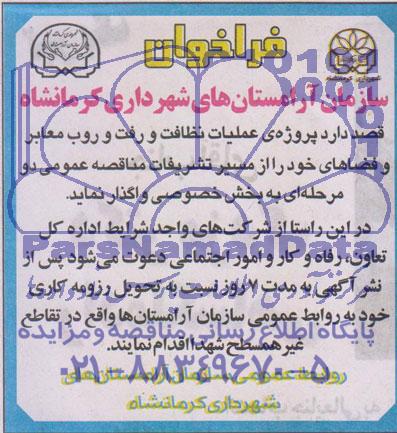 فراخوان
سازمان آرامستان‌های شهرداری کرمانشاه
قصد دارد پروژه‌ی عملیات نظافت و رفت و روب معابر
و فضاهای خود را از مسیر تشریفات مناقصه عمومی دو
مرحله‌ای به بخش خصوصی واگذار نماید.
در این راستا از شرکت‌های واجد شرایط اداره کل
تعاون، رفاه و کار و امور اجتماعی دعوت می‌شود پس از
نشر آگهی به مدت ۷ روز نسبت به تحویل رزومه کاری
خود به روابط عمومی سازمان آرامستان‌ها واقع در تقاطع
غیر همسطح شهدا اقدام نمایند.
روابط عمومی سازمان آرامستان‌های
شهرداری کرمانشاه
شهرداری کرمانشاه
ParsNamadData
پایگاه اطلاع رسانی مناقصه و مزایده
۰۲۱-۸۸۳۴۹۶۷۰-۵